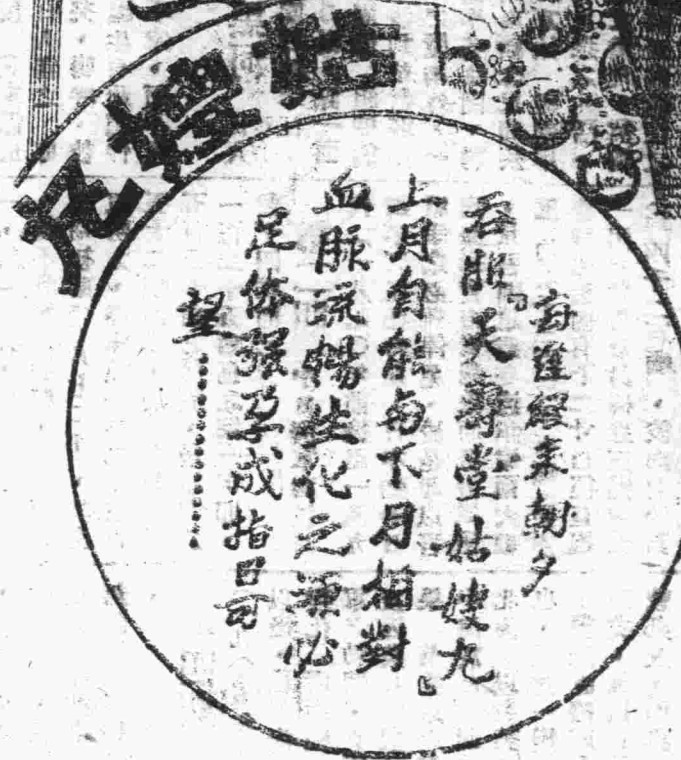 姑嫂丸
每逢經來朝夕
吞服『天壽堂姑嫂丸
上月自能與下月相對』
血脈流暢生化之源必
足体強孕成指日可
望………